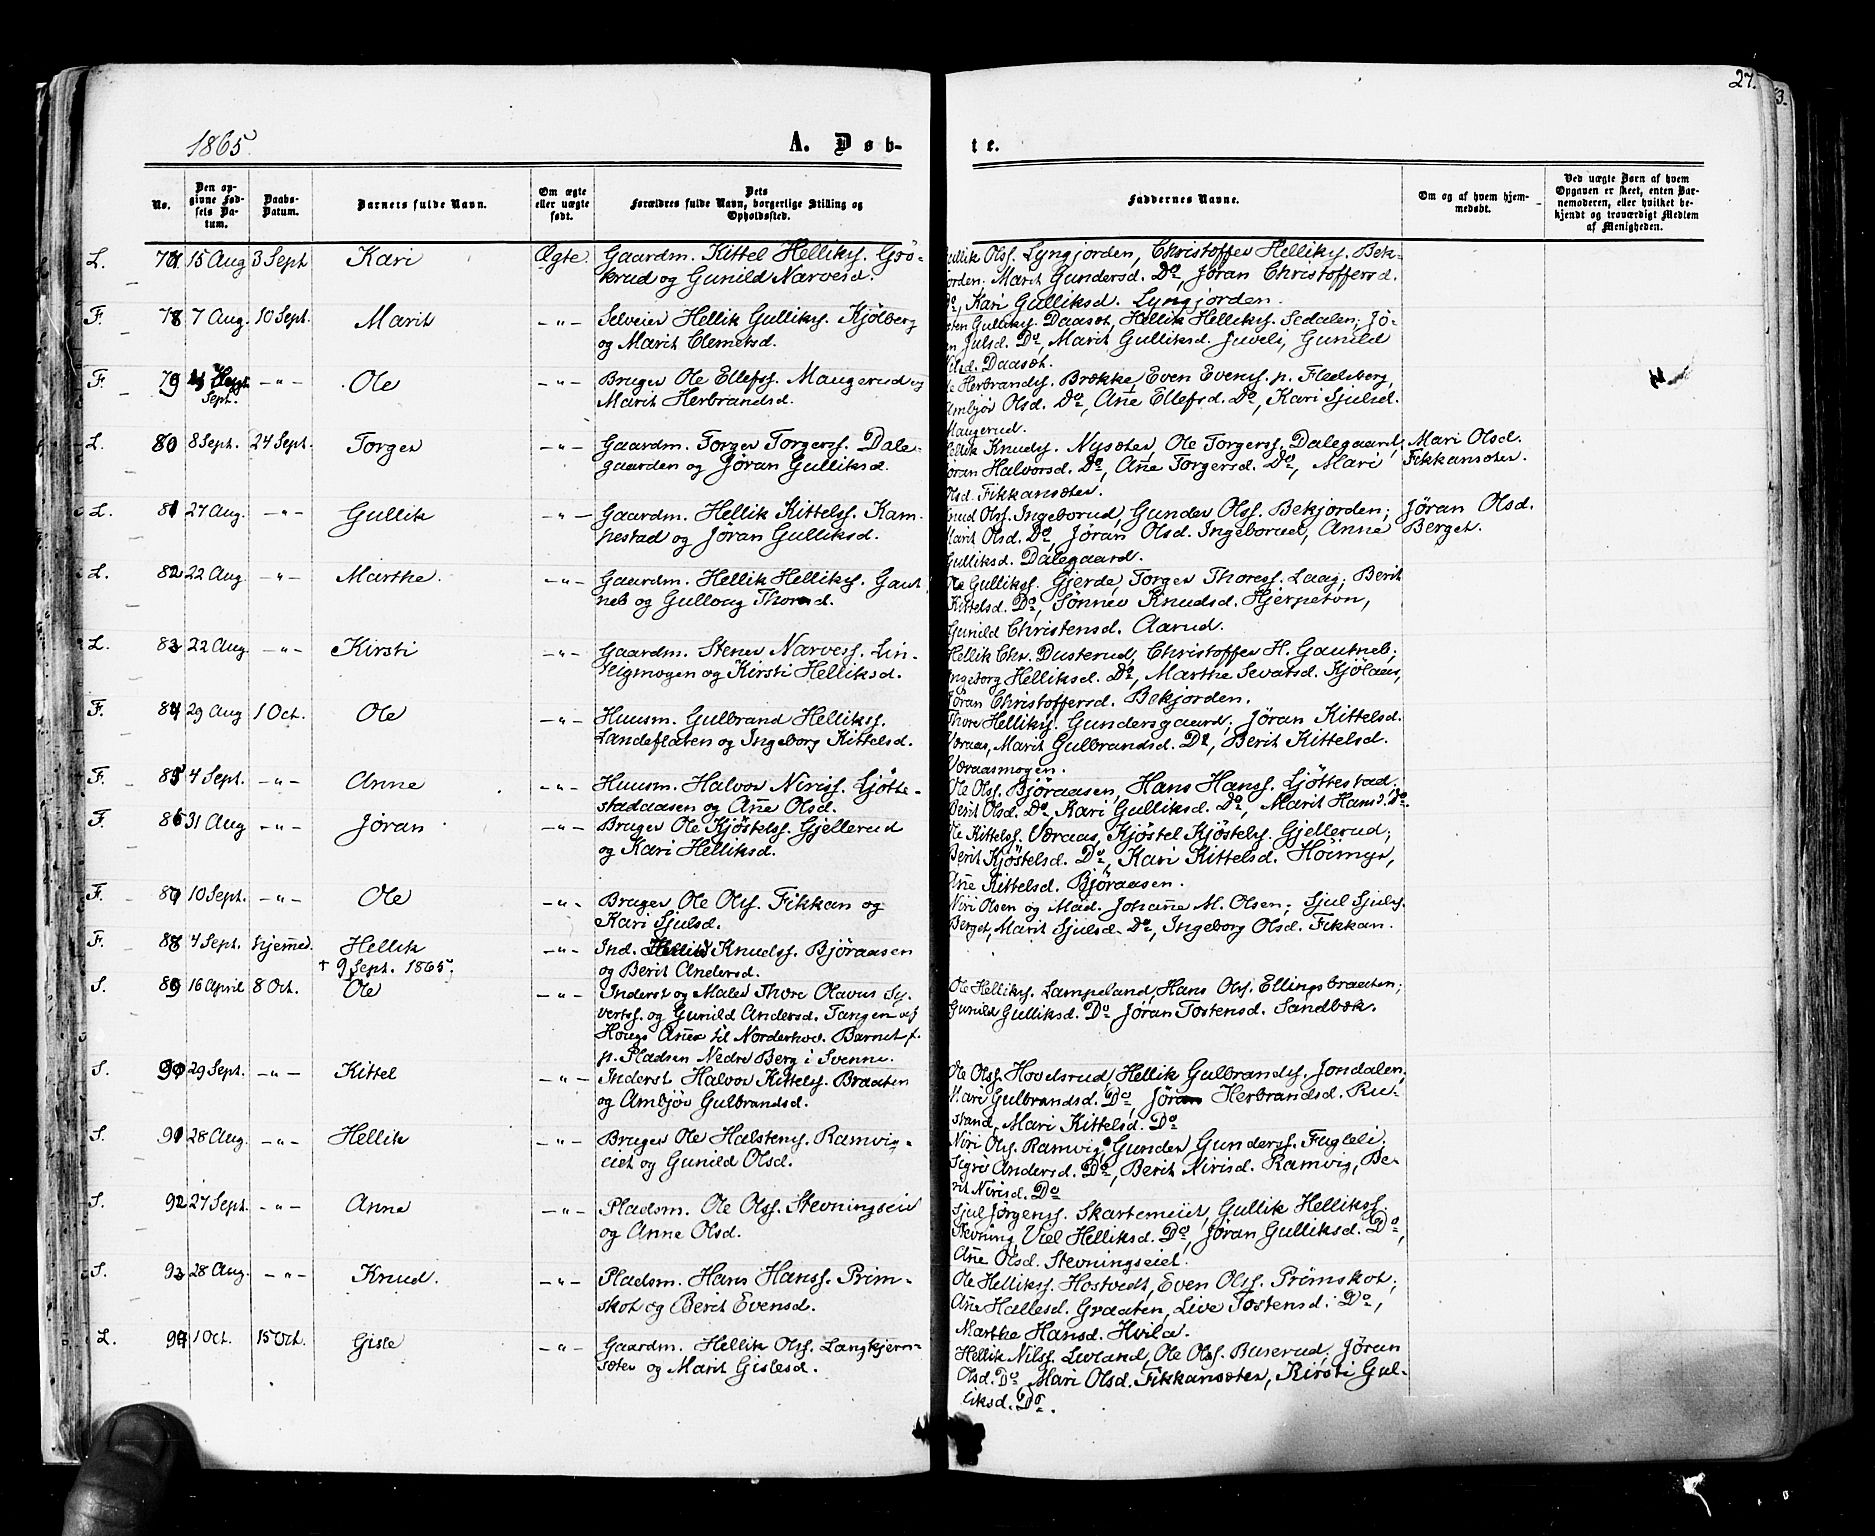 27.
3.
1865.
A. Døb-
te.
No.
Den op-
givne Fød-
sels Da-
tum.
Daabs-
Datum.
Barnets fulde Navn.
Om ægte
eller uægte
født.
Dets
Forældres fulde Navn, borgerlige Stilling og
Opholdssted.
Faddernes Navne.
Om og af hvem hjem-
medøbt.
Ved uægte Børn af hvem
Opgaven er skeet, enten Bar-
nemoderen, eller hvilket be-
kjendt og troværdigt Medlem
af Menigheden.
L. 77 15 Aug 3 Sept Kari Ægte Gaardm. Kittel Helliks. Grö-
krud og Gunild Narvesd.
Gullik Olss. Lyngjorden, Christoffer Helliks. Bek-
jorden, Marit Gundersd. Do, Jøran Christoffersd.
Do, Kari Gulliksd. Lyngjorden.
F. 78 7 Aug. 10 Sept. Marit -"- Selveier Hellik Gulliks. Kjölberg
og Marit Clemetsd.
Gulliks. Daaset, Hellik Helliks. Sedalen; Jö-
Julsd. Do, Marit Gulliksd. Juveli, Gunild
Daaset.
F. 79 Sept. -"- Ole -"- Bruger Ole Ellefss. Maugerud og
Marit Herbrandsd.
Herbrands. Brække, Even Evens. p. Flesberg,
Ambjör Olsd. Do, Ane Ellefsd. Do, Kari Sjulsd.
Maugerud.
L. 80 8 Sept. 24 Sept. Torger -"- Gaardm. Torger Torgerss. Dale-
gaarden og Jøran Gulliksd.
Hellik Knuds. Nysæter, Ole Torgerss. Dalegaard,
Jøran Halvorsd. Do, Ane Torgersd. Do, Mari
Olsd. Fikkansæter.
Mari Olsd.
Fikkansæter.
L. 81 27 Aug. -"- Gullik -"- Gaardm. Hellik Kittelss. Kam-
pestad og Jøran Gulliksd.
Knud Olss. Ingeborud, Gunder Olss. Bekjorden;
Marit Olsd. Do, Jøran Olsd. Ingeborud, Anne
Gulliksd. Dalegaard.
Jøran Olsd.
Berget.
L. 82 22 Aug -"- Marthe. -"- Gaardm. Hellik Helliks. Gaut-
neb og Gulloug Thorsd.
Ole Gulliks. Gjerde, Torger Thoress. Laag; Berit
Kittelsd. Do, Sönnev Knudsd. Hjerpetön,
Gunild Christensd. Aarud.
L. 83 22 Aug -"- Kirsti -"- Gaardm. Stener Narvess. Lin-
tligmogen og Kirsti Helliksd.
Hellik Chr. Dusterud, Christoffer H. Gautneb;
Ingeborg Helliksd. Do, Marthe Sevatsd. Kjölaas,
Jøran Christoffersd. Bekjorden.
F. 84 29 Aug 1 Oct. Ole -"- Huusm. Gulbrand Hellikss.
Landeflaten og Ingeborg Kittelsd.
Thore Helliks. Gundersgaard; Jøran Kittelsd.
Væraas, Marit Gulbrandsd. Do, Berit Kittelsd.
Væraasmogen.
F. 85 4 Sept. -"- Anne -"- Huusm. Halvor Niriss. Ljötte-
stadaasen og Ane Olsd.
Ole Olss. Björaasen, Hans Hanss. Ljöttestad;
Berit Olsd. Do, Kari Gulliksd. Do, Marit Hansd. Do.
F. 86 31 Aug -"- Jøran -"- Bruger Ole Kjöstelss. Gjellerud
og Kari Helliksd.
Ole Kittelss. Væraas, Kjöstel Kjöstels. Gjellerud;
Berit Kjöstelsd. Do, Kari Kittelsd. Höimyr,
Ane Kittelsd. Björaasen.
F. 87 10 Sept. -"- Ole -"- Bruger Ole Olss. Fikkan og
Kari Sjulsd.
Niri Olsen og Mad. Johanne M. Olsen; Sjul Sjuls.
Berget, Marit Sjulsd. Do, Ingeborg Olsd. Fikkan.
F. 88 4 Sept. hjemme. Hellik
† 9 Sept. 1865.
-"- Ind. Hellik Knudss. Björaasen
og Berit Andersd.
S. 89 16 April 8 Oct. Ole -"- Inderst og Maler Thore Olavus Sy-
vertss. og Gunild Andersd. Tangen af
Hougs Anex til Norderhov. Barnet f.
p. Pladsen Nedre Berg i Svenne.
Ole Helliks. Lampeland, Hans Olss. Ellingsbraaten;
Gunild Gulliksd. Do Jøran Tostensd. Sandbæk.
S. 90 29 Sept. -"- Kittel -"- Inderst Halvor Kittels. Braaten
og Ambjör Gulbrandsd.
Ole Olss. Hovelsrud, Hellik Gulbrands. Jondalen,
Kari Gulbrandsd. Do, Jøran Herbrandsd. Ru-
stand, Mari Kittelsd. Do
S. 91 28 Aug. -"- Hellik -"- Bruger Ole Halstens. Ramvig-
eiet og Gunild Olsd.
Niri Olss. Ramvig, Gunder Gunderss. Fugleli;
Sigri Andersd. Do, Berit Nirisd. Ramvig, Be-
rit Nirisd. Do
S. 92 27 Sept. -"- Anne -"- Pladsm. Ole Olss. Stevningseie
og Anne Olsd.
Sjul Jörgens. Skartemeiet, Gullik Hellikss.
Stevning, Viel Helliksd. Do, Jøran Gulliksd. Do,
Ane Olsd. Stevningseiet.
S. 93 28 Aug. -"- Knud. -"- Pladsm. Hans Hanss. Prim-
skot og Berit Evensd.
Ole Helliks. Hostvedt, Even Olss. Prömskot;
Ane Hallesd. Graaten, Live Tostensd. Do,
Marthe Hansd. Hvila.
L. 94 1 Oct. 15 Oct. Gisle -"- Gaardm. Hellik Olss. Langkjern-
sæter og Marit Gislesd.
Hellik Nilss. Livland, Ole Olss. Buserud; Jøran
Olsd. Do Mari Olsd. Fikkansæter, Kirsti Gul-
liksd. Do.